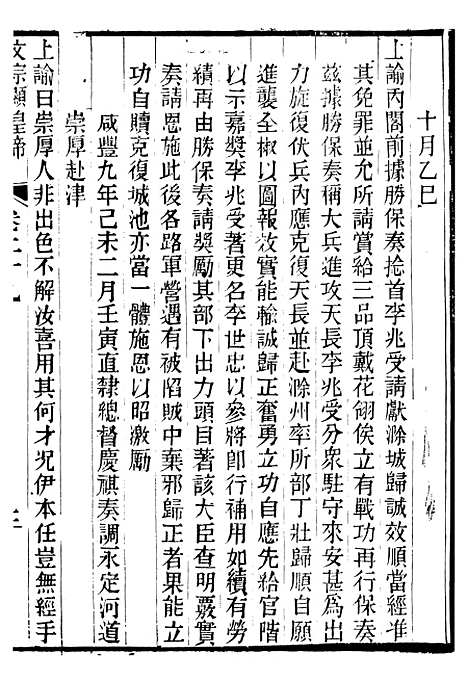 十月乙巳
上諭內閣前據勝保奏捻首李兆受請獻滁城歸誠效順當經准
其免罪並允所請賞給三品頂戴花翎俟立有戰功再行保奏
茲據勝保奏稱大兵進攻天長李兆受分眾駐守來安甚爲出
力旋復伏兵內應克復天長並赴滁州率所部丁壯歸順自願
進襲全椒以圖報效實能輸誠歸正奮勇立功自應先給官階
以示嘉獎李兆受著更名李世忠以參將卽行補用如續有勞
績再由勝保奏請獎勵其部下出力頭目著該大臣查明覈實
奏請恩施此後各路軍營遇有被陷賊中棄邪歸正者果能立
功自贖克復城池亦當一體施恩以昭激勵
咸豐九年己未二月壬寅直隸總督慶祺奏調永定河道
崇厚赴津
上諭曰崇厚人非出色不解汝喜用其何才況伊本任豈無經手
文宗顯皇帝 卷二十九 三